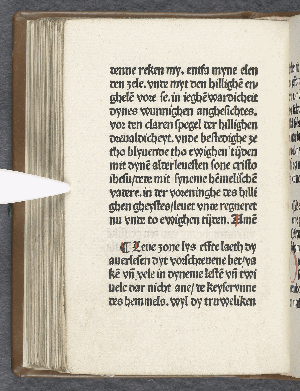 denne reken my. entfa myne elen
den zele. vnde myt den hillighē en-
ghelē vore se. in ieghēwardicheit
dynes wunnighen anghesichtes.
vor den claren spegel der hillighen
dreualdicheyt. vnde bestedighe ze
tho blyuende tho ewighen tijden
mit dynē alderleuesten sone cristo
ihesu/dede mit synemē hēmelischē
vadere. in der voreninghe des hilli
ghen gheystes/leuet vnde regneret
nu vnde to ewighen tijden. Amē
¶ Leue zone lys esste laeth dy
auerlesen dyt vorschreuene bet/va
kē vñ vele in dyneme leste vñ twi
uele dar nicht ane/de keyserynne
des hemmels. wyl dy truweliken